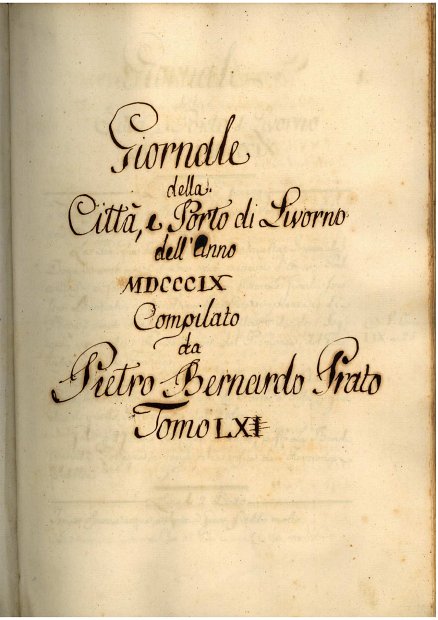 Giornale
della
Città, e Porto di Livorno
dell'Anno
MDCCCIX
Compilato
da
Pietro Bernardo Prato
Tomo LXI